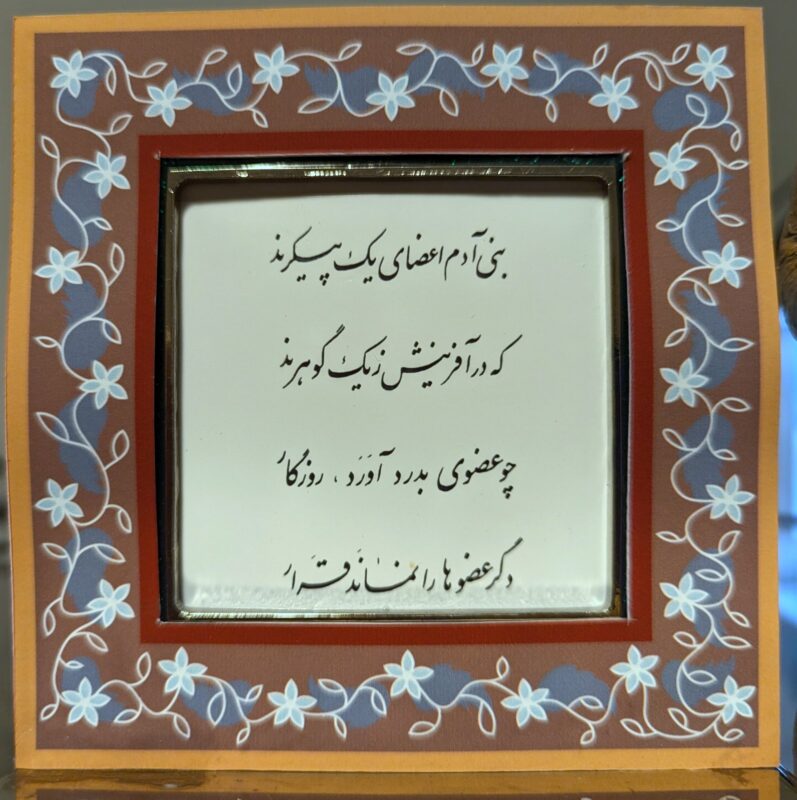 بنی آدم اعضای یک پیکرند
که در آفرینش ز یک گوهرند
چو عضوی بدرد آوَرَد ، روزگار
دگر عضوها را نمٰانَد قَرار